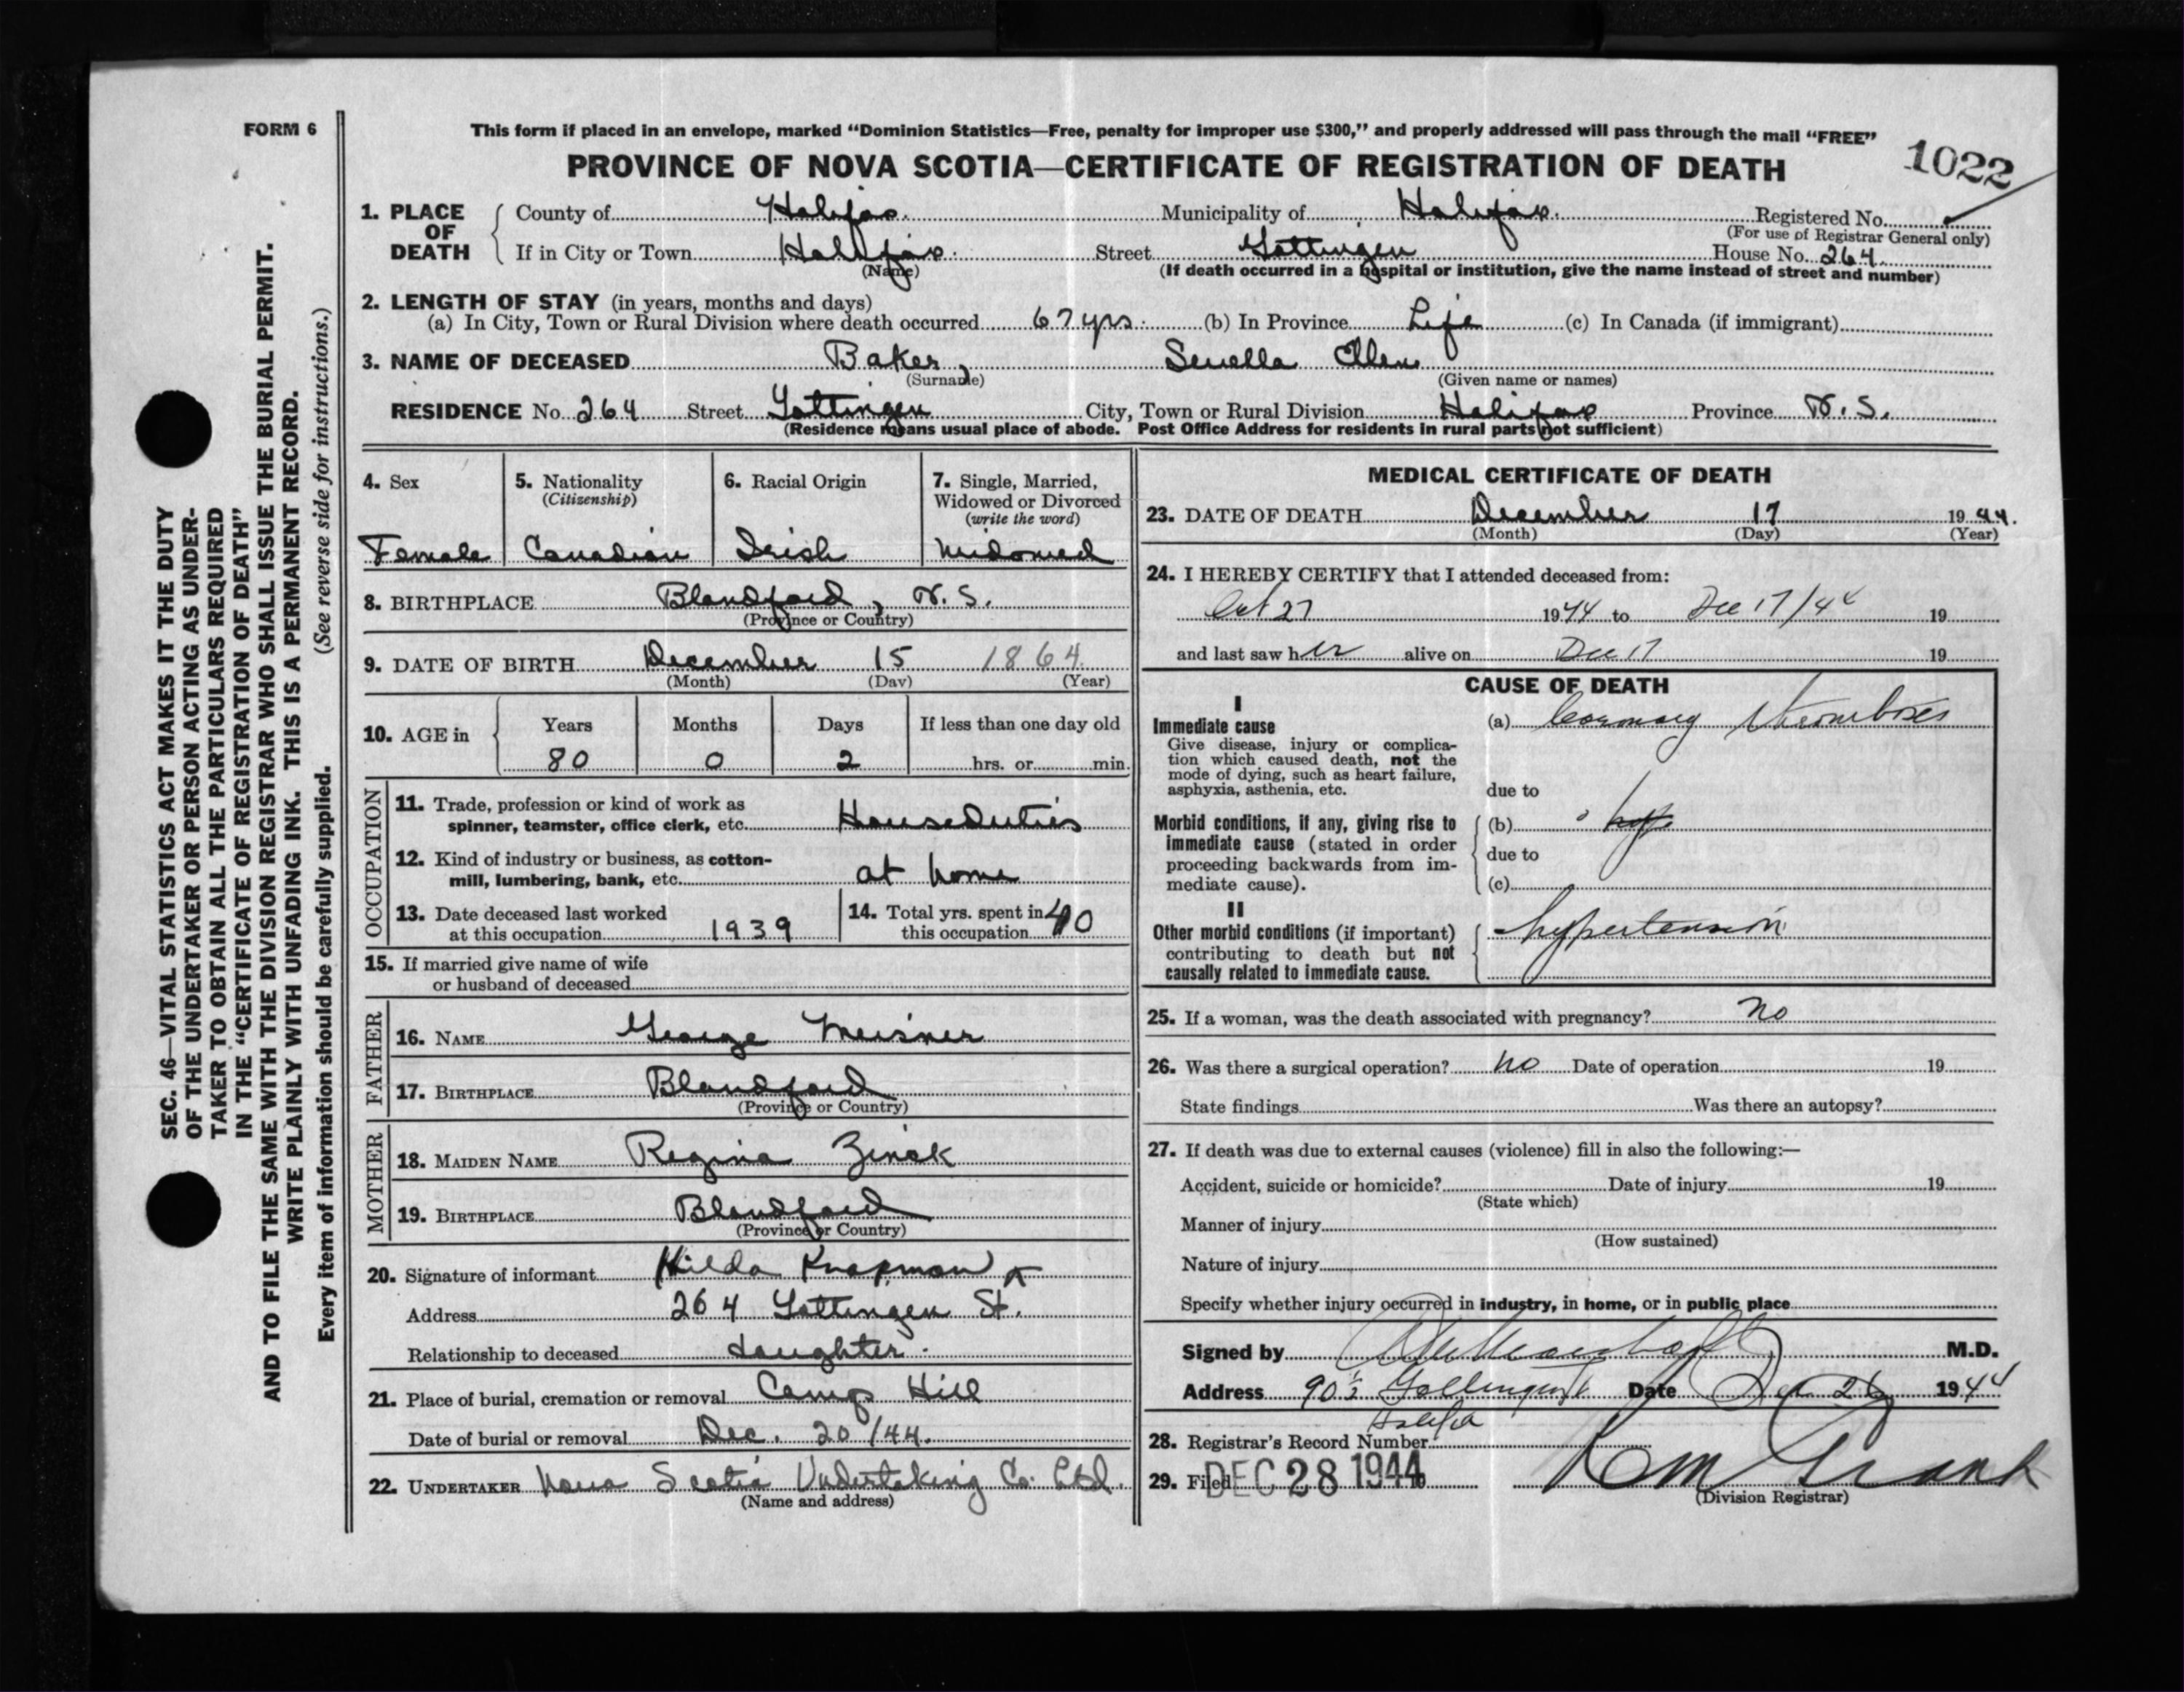 FORM 6
This form if placed in an envelope, marked “Dominion Statistics—Free, penalty for improper use $300,” and properly addressed will pass through the mail “FREE”
PROVINCE OF NOVA SCOTIA—CERTIFICATE OF REGISTRATION OF DEATH
1022
1. PLACE OF DEATH County of Halifax. Municipality of Halifax. Registered No.
(For use of Registrar General only)
If in City or Town Halifax. Street Gottingen House No. 264
(Name) (If death occurred in a hospital or institution, give the name instead of street and number)
2. LENGTH OF STAY (in years, months and days)
(a) In City, Town or Rural Division where death occurred 67 yrs. (b) In Province Life (c) In Canada (if immigrant)
3. NAME OF DECEASED Baker, Ellen
(Surname) (Given name or names)
RESIDENCE No. 264 Street Gottingen City, Town or Rural Division Halifax Province N.S.
(Residence means usual place of abode. Post Office Address for residents in rural parts not sufficient)
4. Sex
Female
5. Nationality
(Citizenship)
Canadian
6. Racial Origin
Irish
7. Single, Married,
Widowed or Divorced
(write the word)
Widowed
8. BIRTHPLACE Blandford, N.S.
(Province or Country)
9. DATE OF BIRTH December 15 1864
(Month) (Day) (Year)
10. AGE in Years Months Days If less than one day old
80 0 2 hrs. or min.
OCCUPATION
11. Trade, profession or kind of work as
spinner, teamster, office clerk, etc. House Duties
12. Kind of industry or business, as cotton-
mill, lumbering, bank, etc. at home
13. Date deceased last worked
at this occupation 1939
14. Total yrs. spent in
this occupation 40
15. If married give name of wife
or husband of deceased
FATHER
16. NAME George Meisner
17. BIRTHPLACE Blandford
(Province or Country)
MOTHER
18. MAIDEN NAME Regina Zinck
19. BIRTHPLACE Blandford
(Province or Country)
20. Signature of informant Hilda Knapman
Address 264 Gottingen St.
Relationship to deceased daughter.
21. Place of burial, cremation or removal Camp Hill
Date of burial or removal Dec. 20/44.
22. UNDERTAKER Nova Scotia Undertaking Co. Ltd.
(Name and address)
MEDICAL CERTIFICATE OF DEATH
23. DATE OF DEATH December 17 1944.
(Month) (Day) (Year)
24. I HEREBY CERTIFY that I attended deceased from:
Oct 27 1944 to Dec 17/44 19
and last saw her alive on Dec 17 19
CAUSE OF DEATH
I
Immediate cause
Give disease, injury or complica-
tion which caused death, not the
mode of dying, such as heart failure,
asphyxia, asthenia, etc.
(a) Coronary thrombosis
due to
Morbid conditions, if any, giving rise to
immediate cause (stated in order
proceeding backwards from im-
mediate cause).
(b)
due to
(c)
II
Other morbid conditions (if important)
contributing to death but not
causally related to immediate cause.
hypertension
25. If a woman, was the death associated with pregnancy? No
26. Was there a surgical operation? No Date of operation 19
State findings Was there an autopsy?
27. If death was due to external causes (violence) fill in also the following:—
Accident, suicide or homicide? Date of injury 19
(State which)
Manner of injury
(How sustained)
Nature of injury
Specify whether injury occurred in industry, in home, or in public place
Signed by M.D.
Address Gottingen St Date Dec 26 1944
Halifax
28. Registrar's Record Number
29. Filed DEC 28 1944
(Division Registrar)
SEC. 46—VITAL STATISTICS ACT MAKES IT THE DUTY
OF THE UNDERTAKER OR PERSON ACTING AS UNDER-
TAKER TO OBTAIN ALL THE PARTICULARS REQUIRED
IN THE “CERTIFICATE OF REGISTRATION OF DEATH”
AND TO FILE THE SAME WITH THE DIVISION REGISTRAR WHO SHALL ISSUE THE BURIAL PERMIT.
WRITE PLAINLY WITH UNFADING INK. THIS IS A PERMANENT RECORD.
Every item of information should be carefully supplied. (See reverse side for instructions.)